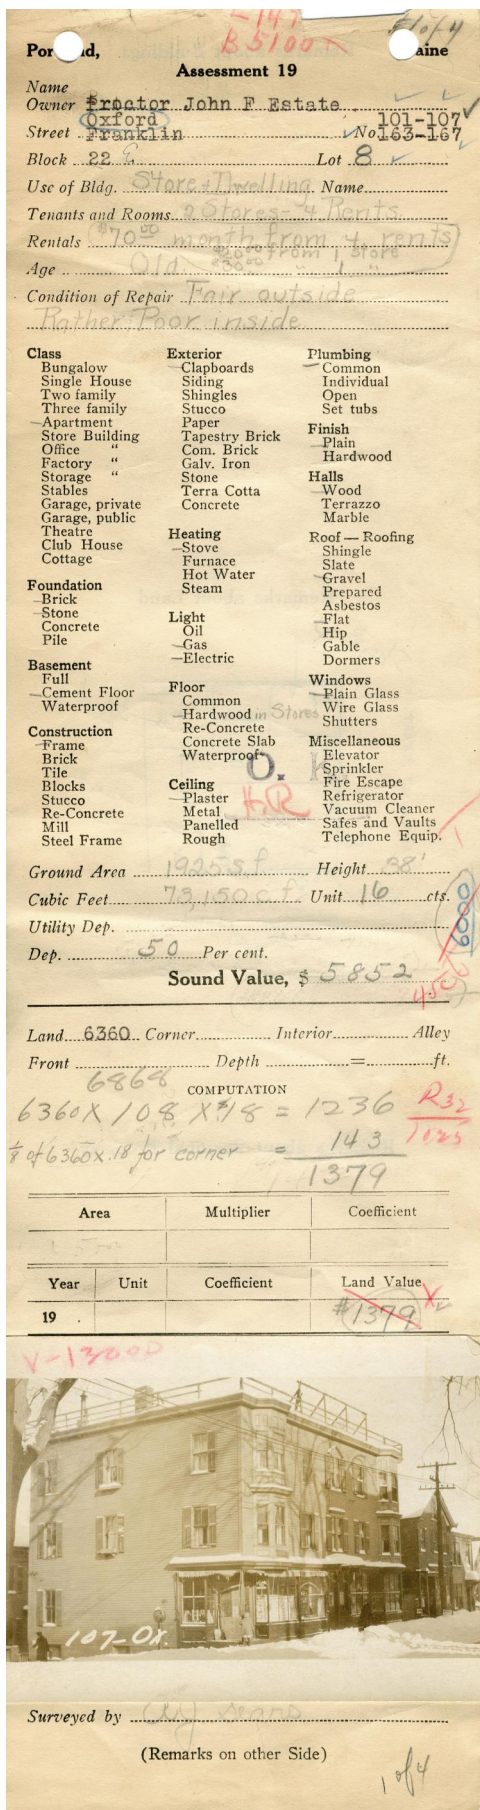 -147
B5100
#1 of 4
Portland, Maine
Assessment 19
Name
Owner Proctor John F Estate
Oxford 101-107
Street Franklin No 163-167
Block 22 E Lot 8
Use of Bldg. Store & Dwelling Name
Tenants and Rooms 2 Stores - 4 Rents
Rentals $70.00 month from 4 rents
from 1 store
Age Old $30.00 " 1 "
Condition of Repair Fair outside
Rather Poor inside
Class
Bungalow
Single House
Two family
Three family
Apartment
Store Building
Office "
Factory "
Storage "
Stables
Garage, private
Garage, public
Theatre
Club House
Cottage
Foundation
Brick
Stone
Concrete
Pile
Basement
Full
Cement Floor
Waterproof
Construction
Frame
Brick
Tile
Blocks
Stucco
Re-Concrete
Mill
Steel Frame
Exterior
Clapboards
Siding
Shingles
Stucco
Paper
Tapestry Brick
Com. Brick
Galv. Iron
Stone
Terra Cotta
Concrete
Heating
Stove
Furnace
Hot Water
Steam
Light
Oil
Gas
Electric
Floor
Common
Hardwood in Stores
Re-Concrete
Concrete Slab
Waterproof
Ceiling
Plaster
Metal
Panelled
Rough
Plumbing
Common
Individual
Open
Set tubs
Finish
Plain
Hardwood
Halls
Wood
Terrazzo
Marble
Roof — Roofing
Shingle
Slate
Gravel
Prepared
Asbestos
Flat
Hip
Gable
Dormers
Windows
Plain Glass
Wire Glass
Shutters
Miscellaneous
Elevator
Sprinkler
Fire Escape
Refrigerator
Vacuum Cleaner
Safes and Vaults
Telephone Equip.
O. K.
H.R
Ground Area 1925 s.f. Height 38'
Cubic Feet 73,150 c.f. Unit 16 cts.
6000
Utility Dep.
Dep. 50 Per cent.
4500
Sound Value, $ 5852
Land 6360 Corner Interior Alley
Front Depth = ft.
6868
COMPUTATION
6360 X 108 X .18 = 1236
R32
1025
1/8 of 6360 x .18 for corner = 143
1379
Area Multiplier Coefficient
Year Unit Coefficient Land Value
19 $1379
V-1300
107-Ox.
Surveyed by
(Remarks on other Side)
1 of 4